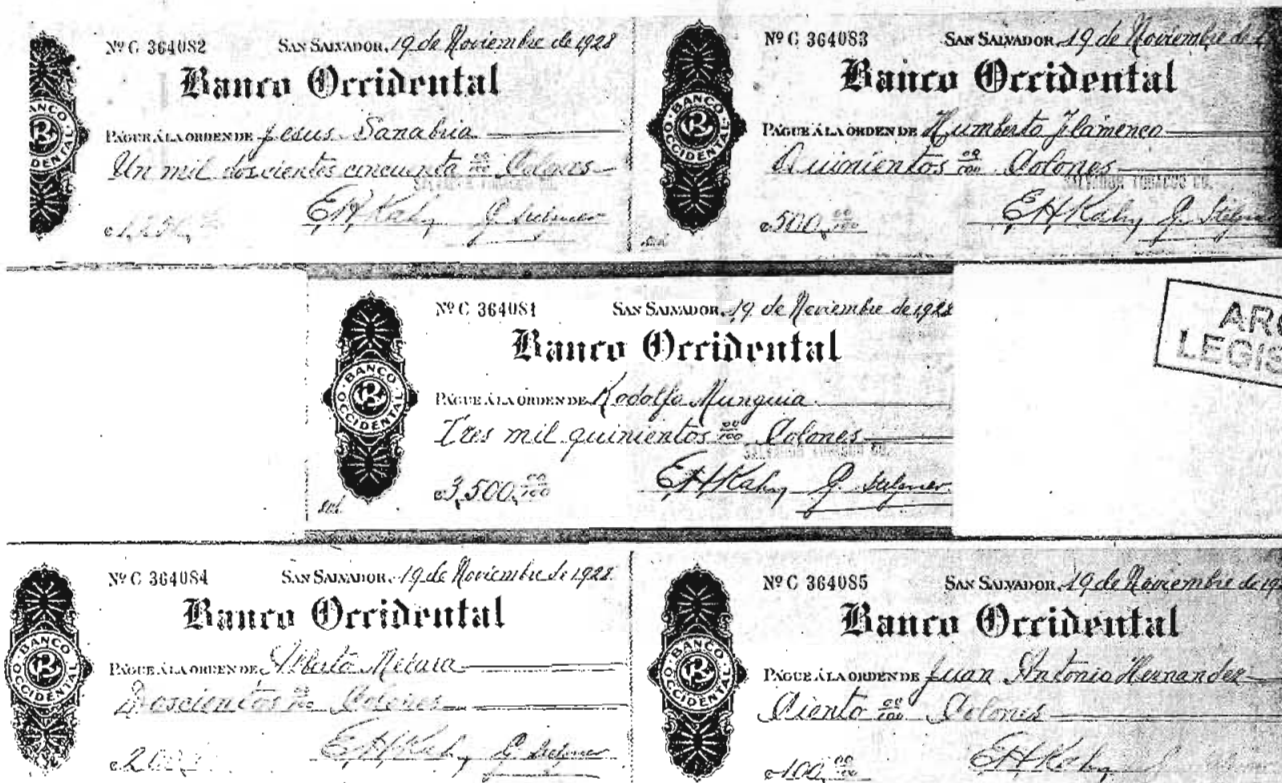 Nº C 364082 SAN SALVADOR, 19 de Noviembre de 1928
Banco Occidental
BANCO OCCIDENTAL
PÁGUE Á LA ORDEN DE Jesus Sanabria
Un mil doscientos cincuenta 00/100 Colones
SALVADOR TOBACCO CO.
¢1,250 00/100 E.H. Kahn
Nº C 364083 SAN SALVADOR, 19 de Noviembre de
Banco Occidental
BANCO OCCIDENTAL
PÁGUE Á LA ORDEN DE Humberto Flamenco
Quinientos 00/100 Colones
SALVADOR TOBACCO CO.
¢500 00/100 E.H. Kahn
Nº C 364081 SAN SALVADOR, 19 de Noviembre de 1928
Banco Occidental
BANCO OCCIDENTAL
PÁGUE Á LA ORDEN DE Rodolfo Munguia
Tres mil quinientos 00/100 Colones
SALVADOR TOBACCO CO.
¢3,500 00/100 E.H. Kahn
ARC
LEGIS
Nº C 364084 SAN SALVADOR, 19 de Noviembre de 1928
Banco Occidental
BANCO OCCIDENTAL
PÁGUE Á LA ORDEN DE Alberto Mejara
Doscientos 00/100 Colones
¢200 E.H. Kahn
Nº C 364085 SAN SALVADOR, 19 de Noviembre de 19
Banco Occidental
BANCO OCCIDENTAL
PÁGUE Á LA ORDEN DE Juan Antonio Hernandez
Ciento 00/100 Colones
¢100 00/100 E.H. Kahn